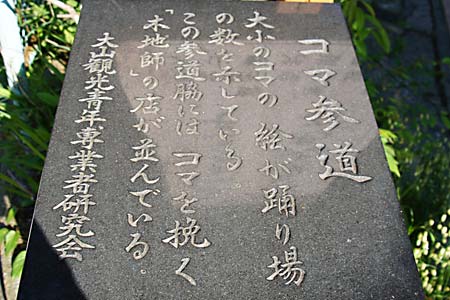 コマ参道
大小のコマの絵が踊り場
の数を示している
この参道脇には コマを挽く
「木地師」の店が並んでいる。
大山観光青年専業者研究会